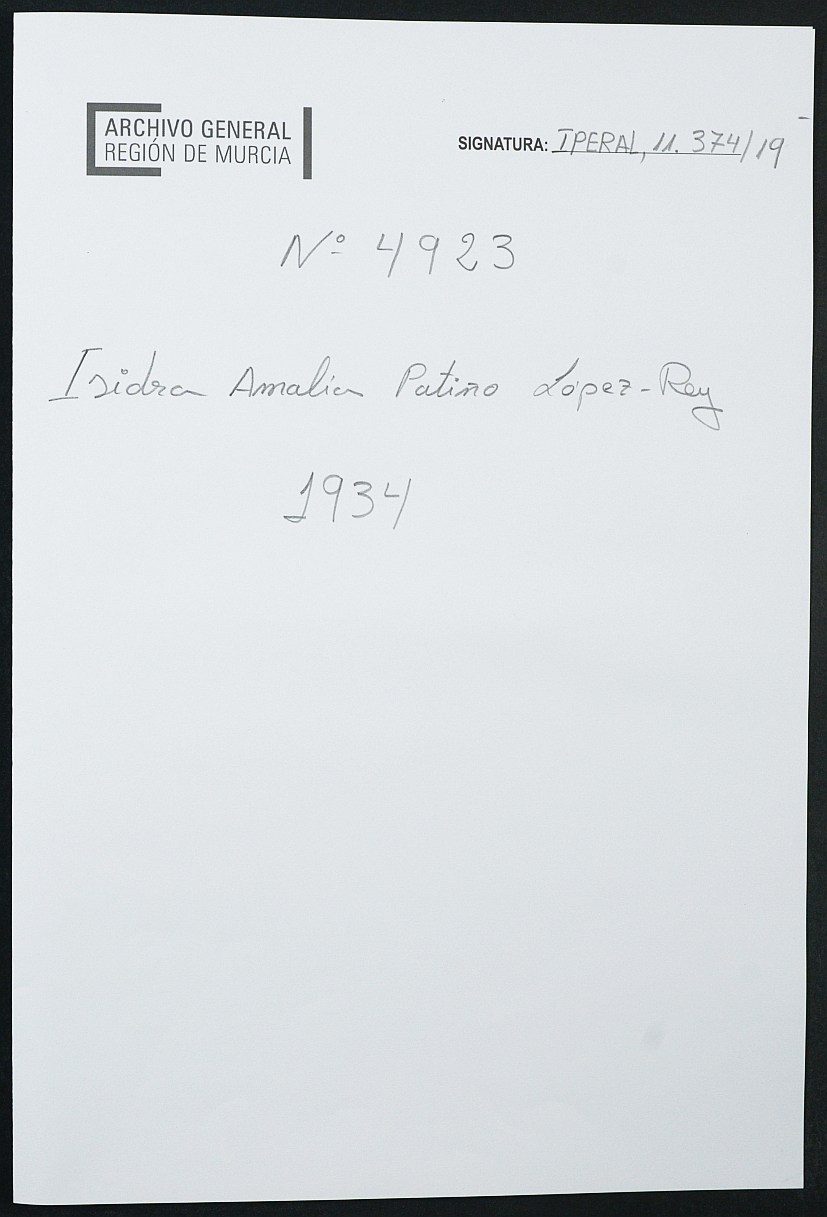 ARCHIVO GENERAL
REGIÓN DE MURCIA
SIGNATURA: IPERAL, 11. 374/19
Nº 4923
Isidra Amalia Patiño López-Rey
1934